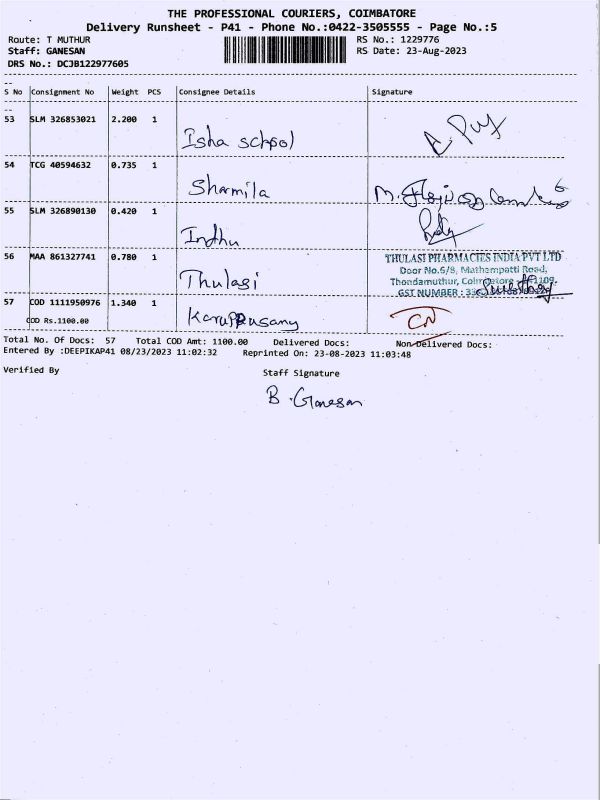 THE PROFESSIONAL COURIERS, COIMBATORE
Delivery Runsheet - P41 - Phone No.:0422-3505555 - Page No.:5
Route: T MUTHUR RS No.: 1229776
Staff: GANESAN RS Date: 23-Aug-2023
DRS No.: DCJB122977605
S No Consignment No Weight PCS Consignee Details Signature
53 SLM 326853021 2.200 1 Isha school
54 TCG 40594632 0.735 1 Sharmila
55 SLM 326890130 0.420 1 Indhu
56 MAA 861327741 0.780 1 Thulasi
THULASI PHARMACIES INDIA PVT LTD
Door No.6/8, Mathampatti Road,
Thondamuthur,
GST NUMBER :
57 COD 1111950976 1.340 1 Karuppusamy CN
COD Rs.1100.00
Total No. Of Docs: 57 Total COD Amt: 1100.00 Delivered Docs: Non-Delivered Docs:
Entered By :DEEPIKAP41 08/23/2023 11:02:32 Reprinted On: 23-08-2023 11:03:48
Verified By Staff Signature
B. Ganesan